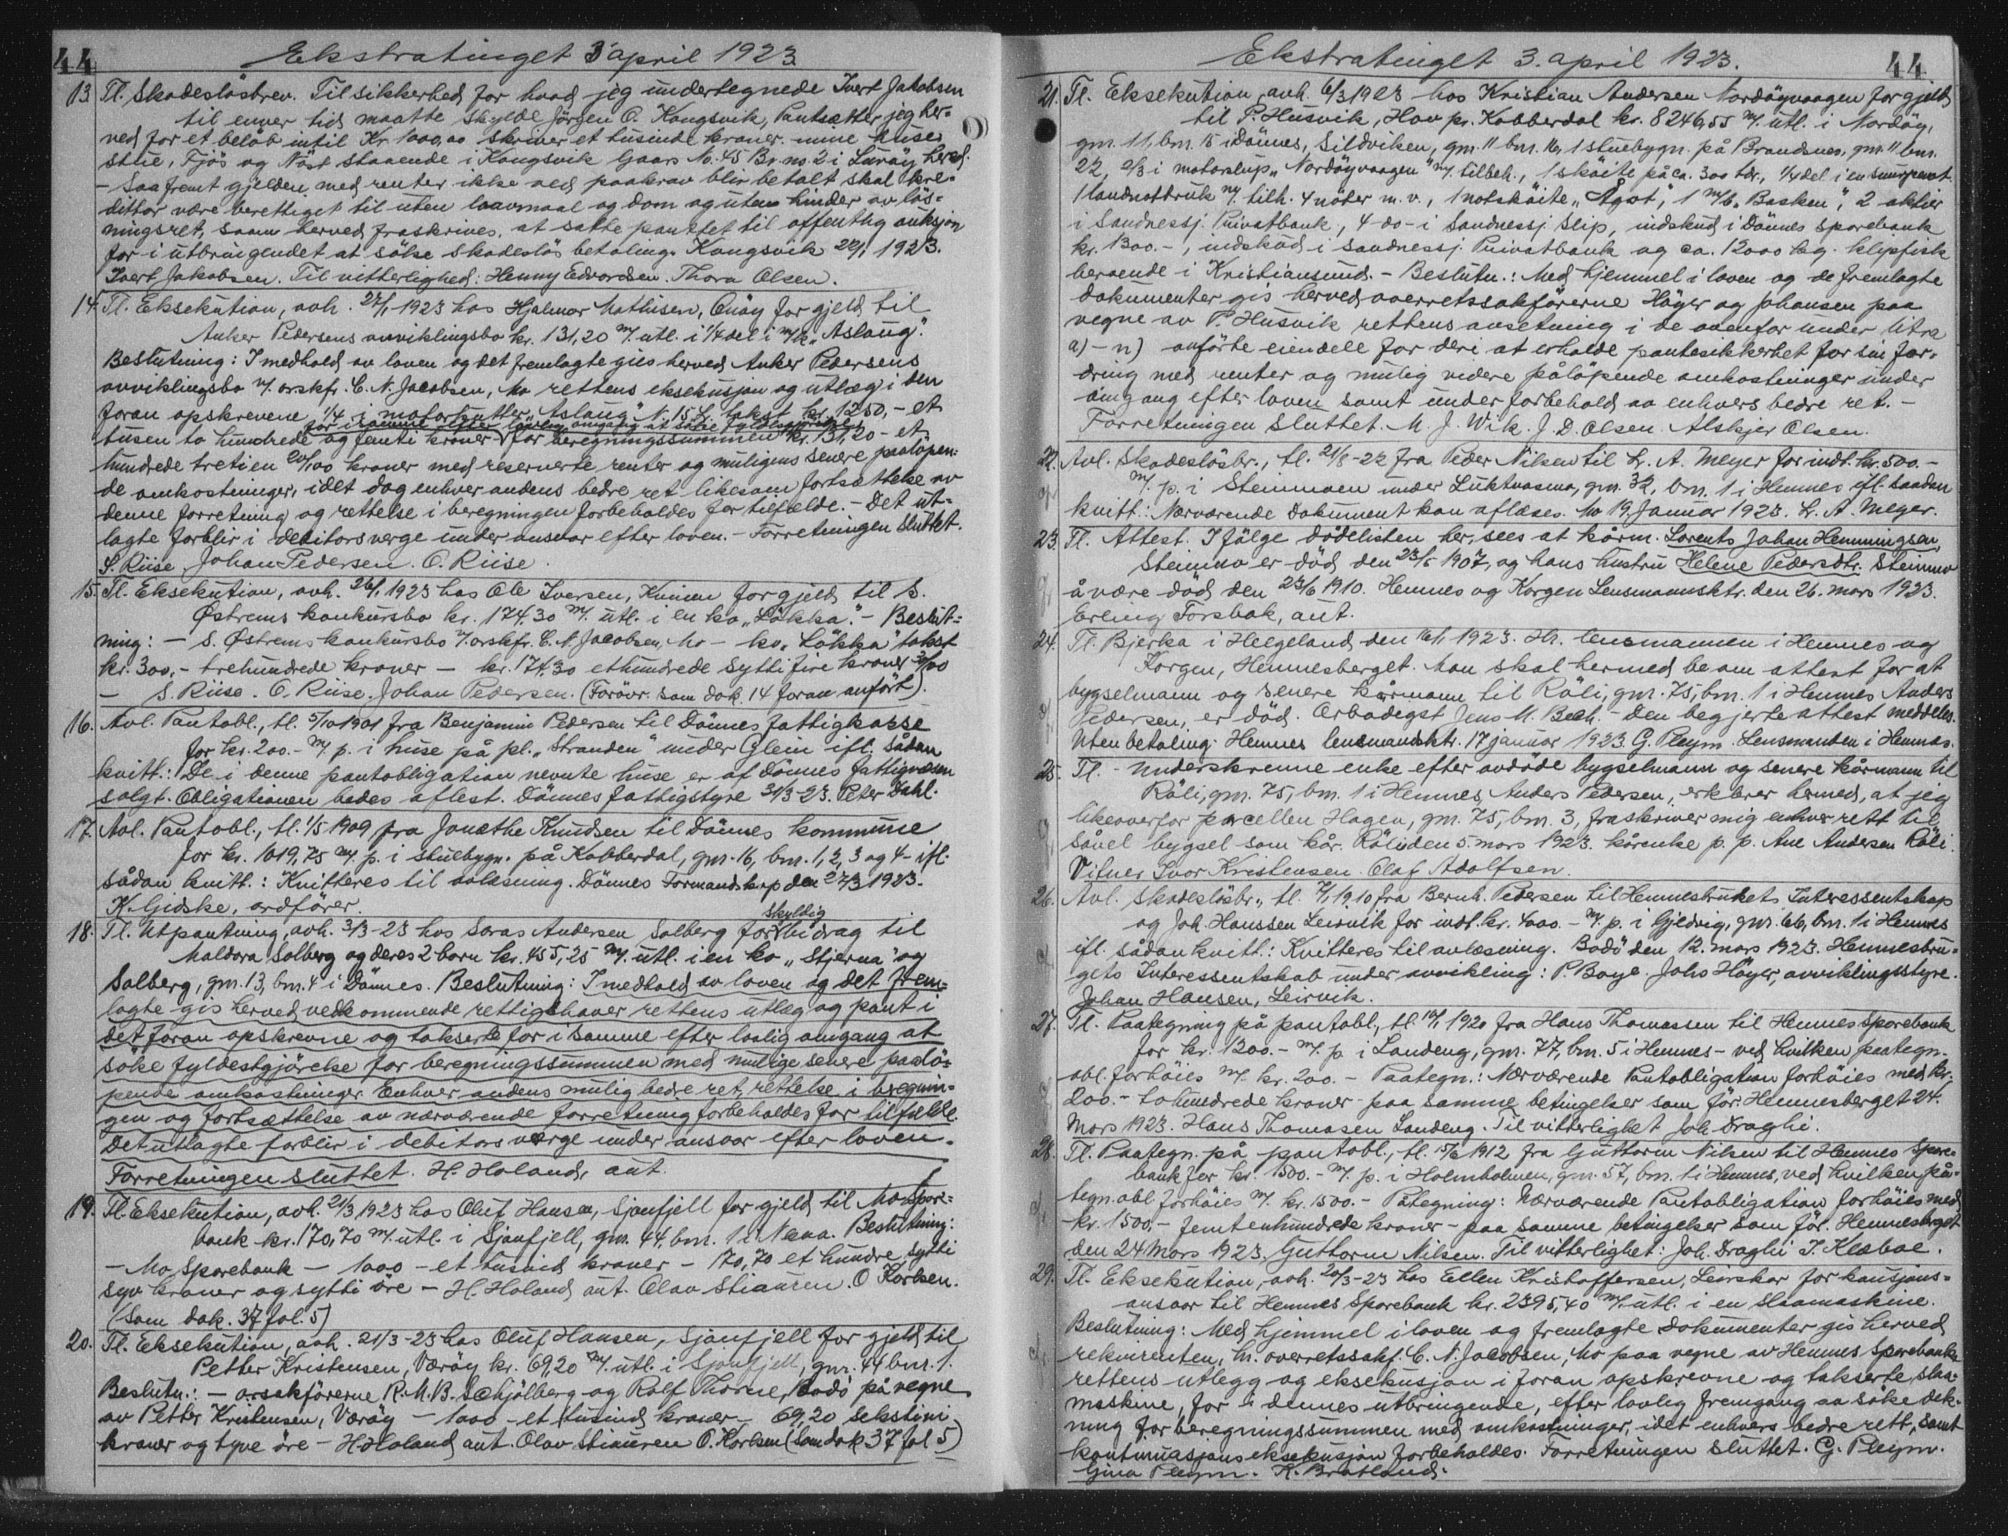 44 Ekstratinget 3 april 1923
13. Tl. Skadeslösbrev. Til sikkerhed for hvad jeg undertegnede Ivert Jakobsen
til enver tid maatte skylde Jörgen O. Kongsvik, Pantsætter jeg her-
ved for et belöb intil Kr 1000,00 skriver et tusinde kroner. mine Huse
stue, Fjös og Nöst staaende i Kongsvik Gaars No. 45 Br. no 2 i Luröy herd.
- Saafremt gjelden med renter ikke ved paakrav blir betalt skal kre-
ditor være berettiget til uten laavmaal og dom og uten hinder av lös-
ningsret, saam herved fraskrives, at sætte pantet til offentlig auksjon
for i utbringendet at söke skadeslös betaling. Kongsvik 20/1 1923.
Ivert Jakobsen. Til vitterlighed: Henny Edvardsen. Thora Olsen.
14. Tl. Eksekution, avh. 27/1 1923 hos Hjalmar Mathisen, Onöy for gjeld til
Anker Pedersens avviklingsbo kr. 131,20 m/. utl. i 1/4 del i m/k „Aslaug".
Beslutning: I medhold av loven og det fremlagte gies herved Anker Pedersens
avviklingsbo v/ orskfr. C. N. Jacobsen, Mo rettens eksekusjon og utlæg i den
foran opskrevene 1/4 i motorkutter „Aslaug" N. 15 L. takst kr. 1250,- et
for i samme efter lovlig omgang at söke fyldestgjörelse
tusen to hundrede og femti kroner - for beregningssummen kr. 131,20 - et
hundrede tretien 20/100 kroner med reserverte renter og muligens senere paalöpen-
de omkostninger, idet dog enhver andens bedre ret likesom fortsættelse av
denne forretning og rettelse i beregningen forbeholdes for tilfælde. - Det ut-
lagte forblir i debitors verge under ansvar efter loven. - Forretningen sluttet.
S. Riise Johan Pedersen. O. Riise.
15. Tl. Eksekution, avh. 26/1 1923 hos Ole Iversen, for gjeld til S.
Østrems konkursbo kr. 174.30 m/. utl. i en ko „Løkka". - Beslut-
ning: - S. Østrems konkursbo v/ orskfr. C. N. Jacobsen, Mo - ko „Løkka" takst
kr. 300.- trehundrede kroner - kr. 174,30 ethundrede sytti fire kroner 30/100
- S. Riise. O. Riise. Johan Pedersen. (Forövr. som dok 14 foran anført).
16. Avl. Pantobl., tl. 5/10 1901 fra Benjamin Pedersen til Dönnes fattigkasse
for kr. 200.- m/. p. i huse på pl. „Stranden" under Glein ifl. sådan
kvitt.: De i denne pantobligation nevnte huse er af Dönnes fattigvæsen
solgt. Obligationen bedes aflest. Dönnes fattigstyre 31/3-23. Peter Dahl.
17. Avl. Pantobl., tl. 1/5 1909 fra Jonethe Knudsen til Dönnes kommune
for kr. 1019,75 m/. p. i stuebygn. på Kobberdal, gnr. 16, bnr. 1, 2, 3 og 4 - ifl.
sådan kvitt.: Kvitteres til avlæsning. Dönnes Formandskap den 27/3 1923.
K. Gidske, ordförer.
18. Tl. Utpantning, avh. 3/3-23 hos Saras Andersen Solberg for skyldig bidrag til
Maldora Solberg og deres 2 born kr. 455,25 m/. utl. i en ko „Stjerna" og
Solberg, gnr. 13, bnr. 4 i Dönnes. Beslutning: I medhold av loven og det frem-
lagte gis herved vedkommende rettighaver rettens utlæg og pant i
det foran opskrevne og takserte for i samme efter lovlig omgang at
söke fyldestgjörelse for beregningssummen med mulige senere paalö-
pende omkostninger. Enhver andens mulig bedre ret, rettelse i beregnin-
gen og fortsættelse av nærværende forretning forbeholdes for tilfælde.
Det utlagte forblir i debitors værge under ansvar efter loven.
Forretningen sluttet. H. Holand, aut.
19. Tl. Eksekution, avh. 21/3 1923 hos Oluf Hansen, Sjonfjell for gjeld til Mo Spare-
bank kr. 170,70 m/. utl. i Sjonfjell, gnr. 44, bnr. 1 i Nesna. Beslutning:
- Mo Sparebank - 1000 - et tusind kroner - 170,70 et hundre sytti
syv kroner og sytti öre - H. Holand aut. Olav Stianren. O Karlsen.
(Som dok. 37 fol. 5)
20. Tl. Eksekution, avh. 21/3-23 hos Oluf Hansen, Sjonfjell for gjeld til
Petter Kristensen, Væröy kr. 69,20 m/. utl. i Sjonfjell, gnr. 44 bnr. 1.
Beslutn.: - orsakförerne R. M. B. Schjölberg og Rolf Thorne, Bodö på vegne
av Petter Kristensen, Væröy - 1000 - et tusind kroner - 69,20 sekstini
kroner og tyve öre - H. Holand aut. Olav Stianren O. Karlsen (Som dok 37 fol 5)
Ekstratinget 3. april 1923. 44
21. Tl. Eksekution, avh. 6/3 1923 hos Kristian Andersen Nordöyvaagen for gjeld
til P. Husvik, Hov pr. Kobberdal kr. 8246,55 m/. utl. i Nordöy,
gnr. 11, bnr. 15 i Dönnes, Sildviken, gnr. 11 bnr. 16, 1 stuebygn. på Brandsnes, gnr. 11 bnr.
22, 2/3 i motorslup „Nordöyvaagen" m/ tilbeh., 1 sköite på ca. 300 tdr., 1/3 del i en
1 landnotbruk m/. tilh. 4 nöter m. v., 1 notsköite „Ågot", 1 m/b. „Basken", 2 aktier
i Sandnessj. Privatbank, 4 -do- i Sandnessj Slip, indskud i Dönnes sparebank
kr. 1300.-, indskud i Sandnessj. Privatbank og ca. 12000 kg. klipfisk
beroende i Kristiansund. - Beslutn.: Med hjemmel i loven og de fremlagte
dokumenter gis herved overretssakförerne Höyer og Johansen paa
vegne av P. Husvik rettens avsetning i de ovenfor under litra
a) - n) anförte eiendele for deri at erholde pantesikkerhet for sin for-
dring med renter og mulig videre påløpende omkostninger under
omgang efter loven samt under forbehold av enhvers bedre ret. -
Forretningen sluttet. M. J. Wik. J. D. Olsen. Alskjer Olsen.
22. Avl. Skadeslösbr., tl. 21/8-22 fra Peder Nilsen til L. A. Meyer for indt. kr. 500.-
m/. p. i Steinmoen under Luktvasmo, gnr. 32, bnr. 1 i Hemnes ifl. saadan
kvitt.: Nærværende dokument kan aflæses. Mo 19 Januar 1923. L. A. Meyer.
23. Tl. Attest. I fölge dödelisten her, sees at kårm. Lorents Johan Hemmingsen,
Steinmo er död den 23/5 1907, og hans hustru Helene Pedersdtr. Steinmo
å være död den 23/6 1910. Hemnes og Korgen Lensmannsktr. den 26. mars 1923.
Erling Forsbak, aut.
24. Tl. Bjerka i Helgeland den 16/1 1923. Hr. Lensmannen i Hemnes og
Korgen, Hemnesberget. Man skal hermed be om attest for at
bygselmann og senere kårmann til Röli, gnr. 75, bnr. 1 i Hemnes Anders
Pedersen, er död. Ærbödigst Jens M. Bech. - Den begjerte attest meddeles.
Uten betaling. Hemnes lensmandsktr. 17 januar 1923. G. Pleym. Lensmanden i Hemnes.
25. Tl. - Underskrevne enke efter avdöde bygselmann og senere kårmann til
Röli, gnr. 75, bnr. 1 i Hemnes Anders Pedersen, erklærer hermed, at jeg
likeoverfor parcellen Hagen, gnr. 75, bnr. 3, fraskriver mig enhver rett til
såvel bygsel som kår. Röli den 5. mars 1923. kårenke p. p. Ane Andersen Röli.
Vitner Ivar Kristensen. Olaf Adolfsen.
26. Avl. Skadeslösbr., tl. 7/1 1910 fra Bernh. Pedersen til Hemnesbrukets Interessentskap
og Joh. Hanssen Leirvik for indt. kr. 4000.- m/. p. i Gjeldvig, gnr. 66, bnr. 1 i Hemnes
ifl. sådan kvitt.: Kvitteres til avlæsning. Bodö den 12. mars 1923. Hemnesbru-
gets Interessentskab under avvikling: P. Boye. Johs Höyer, avviklingsstyre.
Johan Hansen, Leirvik.
27. Tl. Paategning på pantobl., tl. 12/1 1920 fra Hans Thomassen til Hemnes Sparebank
for kr. 1300.- m/. p. i Landeng, gnr. 77, bnr. 5 i Hemnes - ved hvilken paategn.
obl. forhöies m/. kr. 200.- Paategn.: Nærværende Pantobligation forhöies med kr.
200.- tohundrede kroner - paa samme betingelser som för. Hemnesberget 24.
Mars 1923. Hans Thomasen Landeng. Til vitterlighet Joh. Draghi.
28. Tl. Paategn. på pantobl., tl. 15/6 1912 fra Guttorm Nilsen til Hemnes Spare-
bank for kr. 1500.- m/. p. i Holmholmen, gnr. 57, bnr. 1 i Hemnes, ved hvilken på-
tegn. obl. forhöies m/. kr. 1500.- Påtegning: Nærværende Pantobligation forhöies med
kr. 1500,- femtenhundrede kroner - paa samme betingelser som för. Hemnesberget
den 24 Mars 1923. Guttorm Nilsen. Til vitterlighet: Joh. Draghi J. Klæboe.
29. Tl. Eksekution, avh. 20/3-23 hos Ellen Kristoffersen, Leirskar for kausjons-
ansvar til Hemnes Sparebank kr. 2395,40 m/. utl. i en slaamaskine.
Beslutning: Med hjemmel i loven og fremlagte dokumenter gis herved
rekvirenten, hr. overretssakf. C. N. Jacobsen, Mo paa vegne av Hemnes Sparebank
rettens utlegg og eksekusjon i foran opskrevne og takserte slaa-
maskine, for i dennes utbringende, efter lovlig fremgang aa söke dek-
ning for beregningssummen med omkostninger, idet enhvers bedre rett, samt
kontinuasjonseksekusjon forbeholdes. Forretningen sluttet. G. Pleym.
Gina Pleym. K. Bratland.